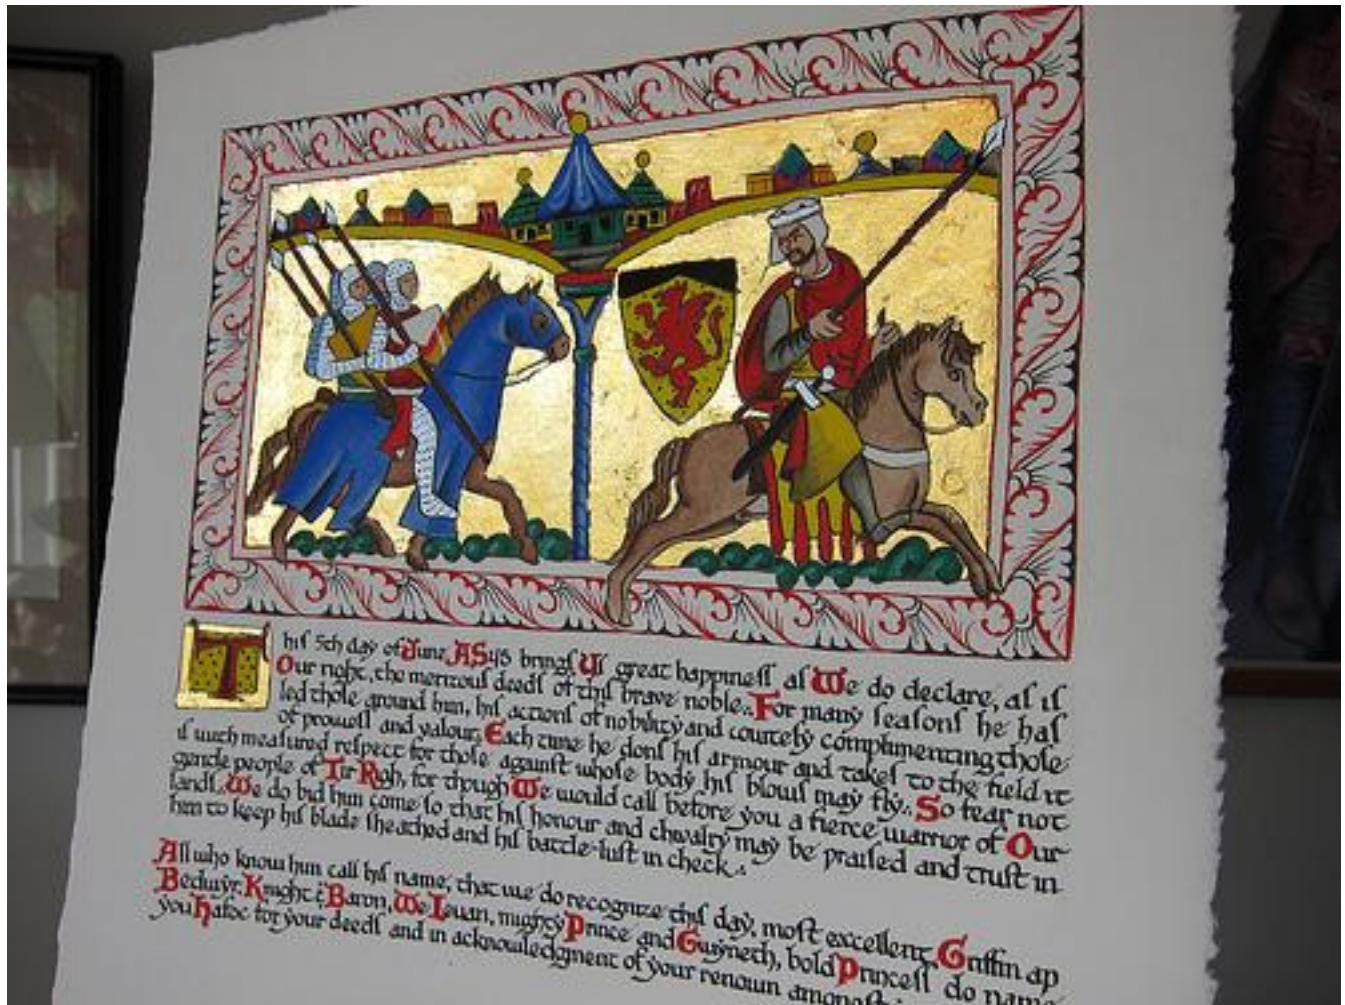 This 5th day of June AS 43 brings Us great happiness as We do declare, as is
Our right, the meritous deeds of this brave noble. For many seasons he has
led those around him, his actions of nobility and courtesy complimenting those
of prowess and valour. Each time he dons his armour and takes to the field it
is with measured respect for those against whose body his blows may fly. So fear not
gentle people of Tir Righ, for though We would call before you a fierce warrior of Our
lands. We do bid him come so that his honour and chivalry may be praised and trust in
him to keep his blade sheathed and his battle-lust in check.
All who know him call his name, that we do recognize this day, most excellent, Griffin ap
Bedwyr, Knight & Baron, We Ieuan, mighty Prince and Gwyneth, bold Princess do name
you Hafoc for your deeds and in acknowledgment of your renown amongst